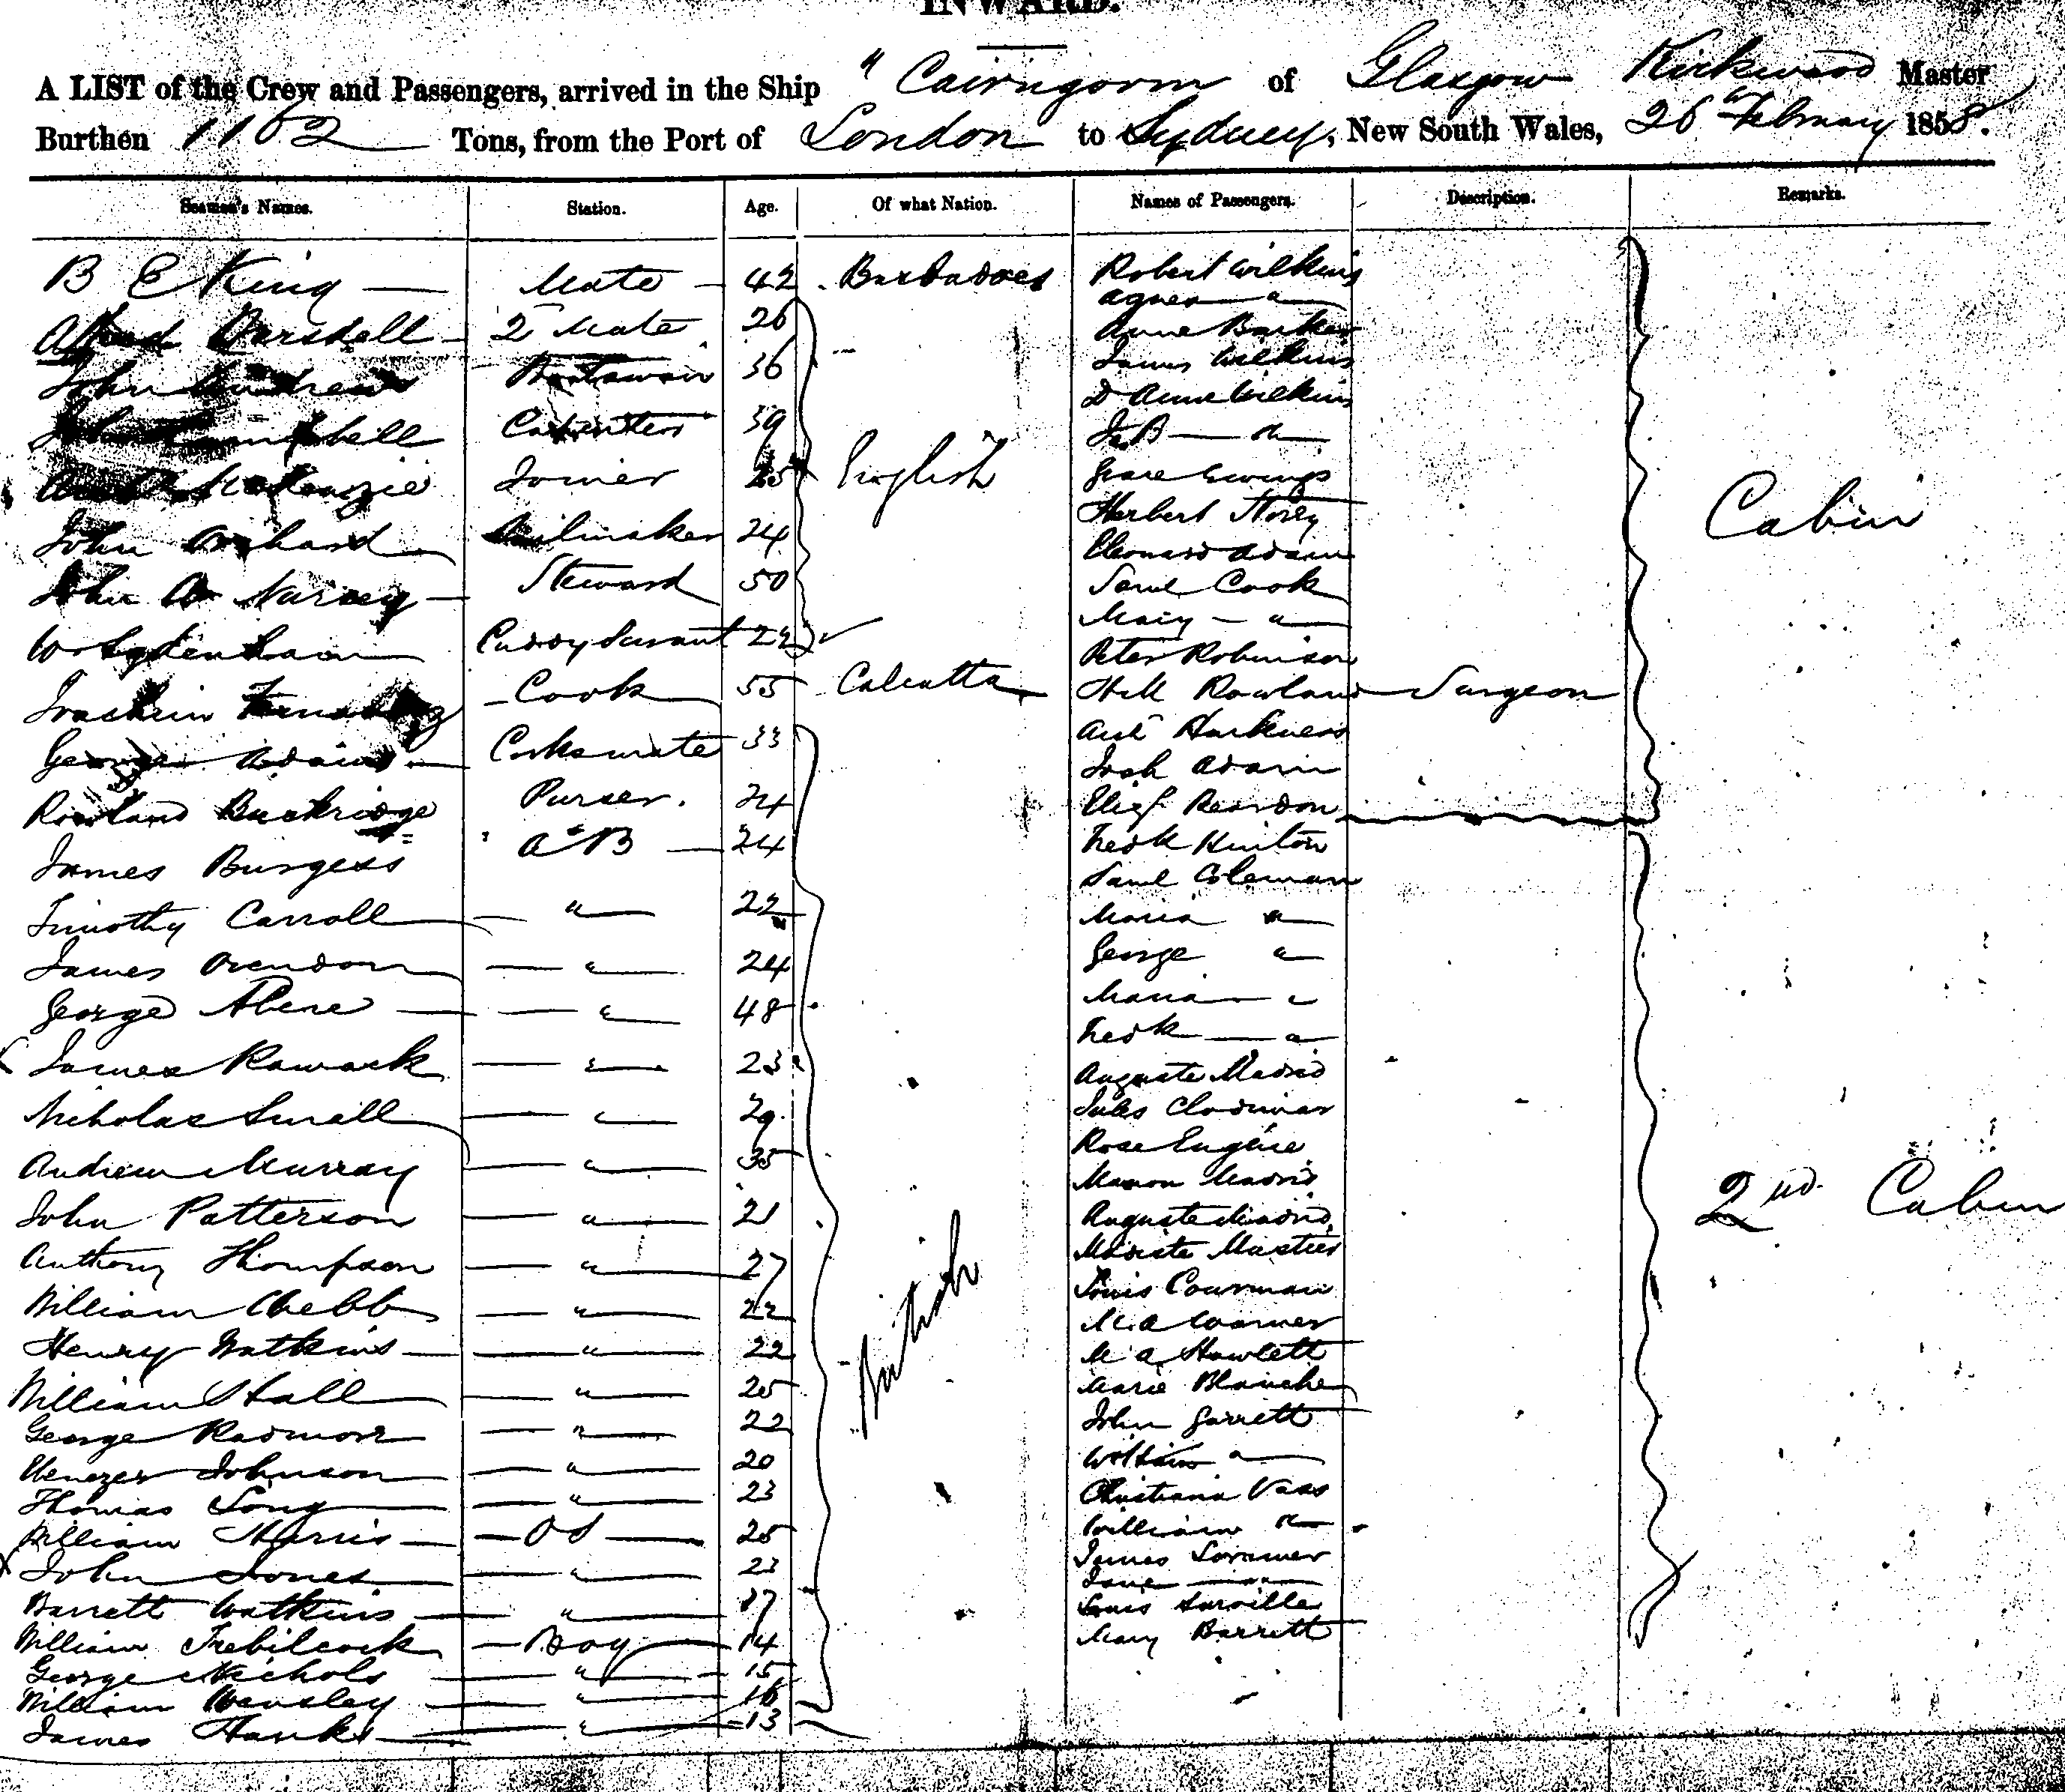 INWARD.
A LIST of the Crew and Passengers, arrived in the Ship "Cairngorm of Glasgow Kirkwood Master
Burthen 1102 Tons, from the Port of London to Sydney, New South Wales, 26th February 1858.
Seamen's Names. Station. Age. Of what Nation. Names of Passengers. Description. Remarks.
B E King — Mate — 42 . Barbadoes
Alfred 2 Mate 26
John Andrews Boatswain 36
John Campbell Carpenter 39
McKenzie Joiner 25 English
John Orchard Sailmaker 24
John Steward 50
W Sydenham Cuddy Servant 22
Cook 55 Calcutta
George Adams Cooksmate 33
Rowland Buckridge Purser. 24
James Burgess A B — 24
Timothy Carroll " 22
James — " 24
George — " 48
James — " 23
Nicholas — " 29
Andrew Murray — " 35
John Patterson — " 21
Anthony Thompson — " 27
William Chebb — " 22
Henry Watkins — " 22
William Hall — " 25
George Radmore — " 22
Ebenezer Johnson — " 20
Thomas Long — " 23
William Harris — O S — 25
John Jones — " 23
Barrett Watkins — " 17
William Trebilcock — Boy — 14
George Nichols — " 15
William Hensley — " 16
James Hanks — " 13
British
Robert Wilkins
Agnes "
Anne Barker
James Wilkins
D Anne Wilkins
"
Grace Ewings
Herbert Storey
Adam
Saml Cook
Mary — "
Peter Robinson
Hill Rowland — Surgeon
Harkness
Josh Adam
Reardon
Cabin
Fredk Hinton
Saml Coleman
Maria "
George "
Maria — "
Fredk — "
Auguste
Jules
Rose Eugenie
Auguste
Louis
M. A Warner
M A Howlett
Marie Blanche
John Garrett
William "
Christiana Vaas
William "
James Lorimer
Jane — "
Louis
Mary Barrett
2nd. Cabin